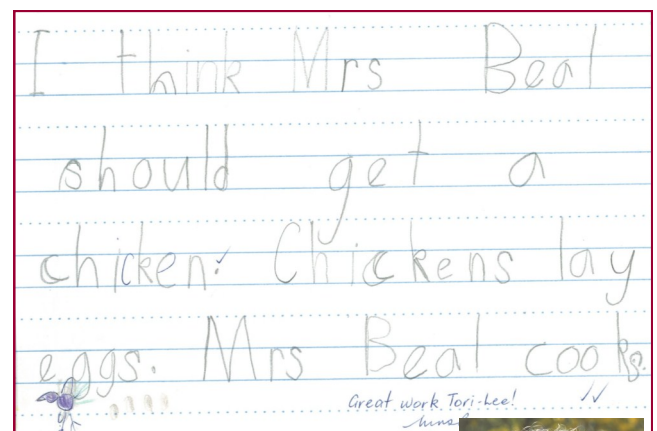 I think Mrs Beal
should get a
chicken. Chickens lay
eggs. Mrs Beal cooks.
Great work Tori-Lee!